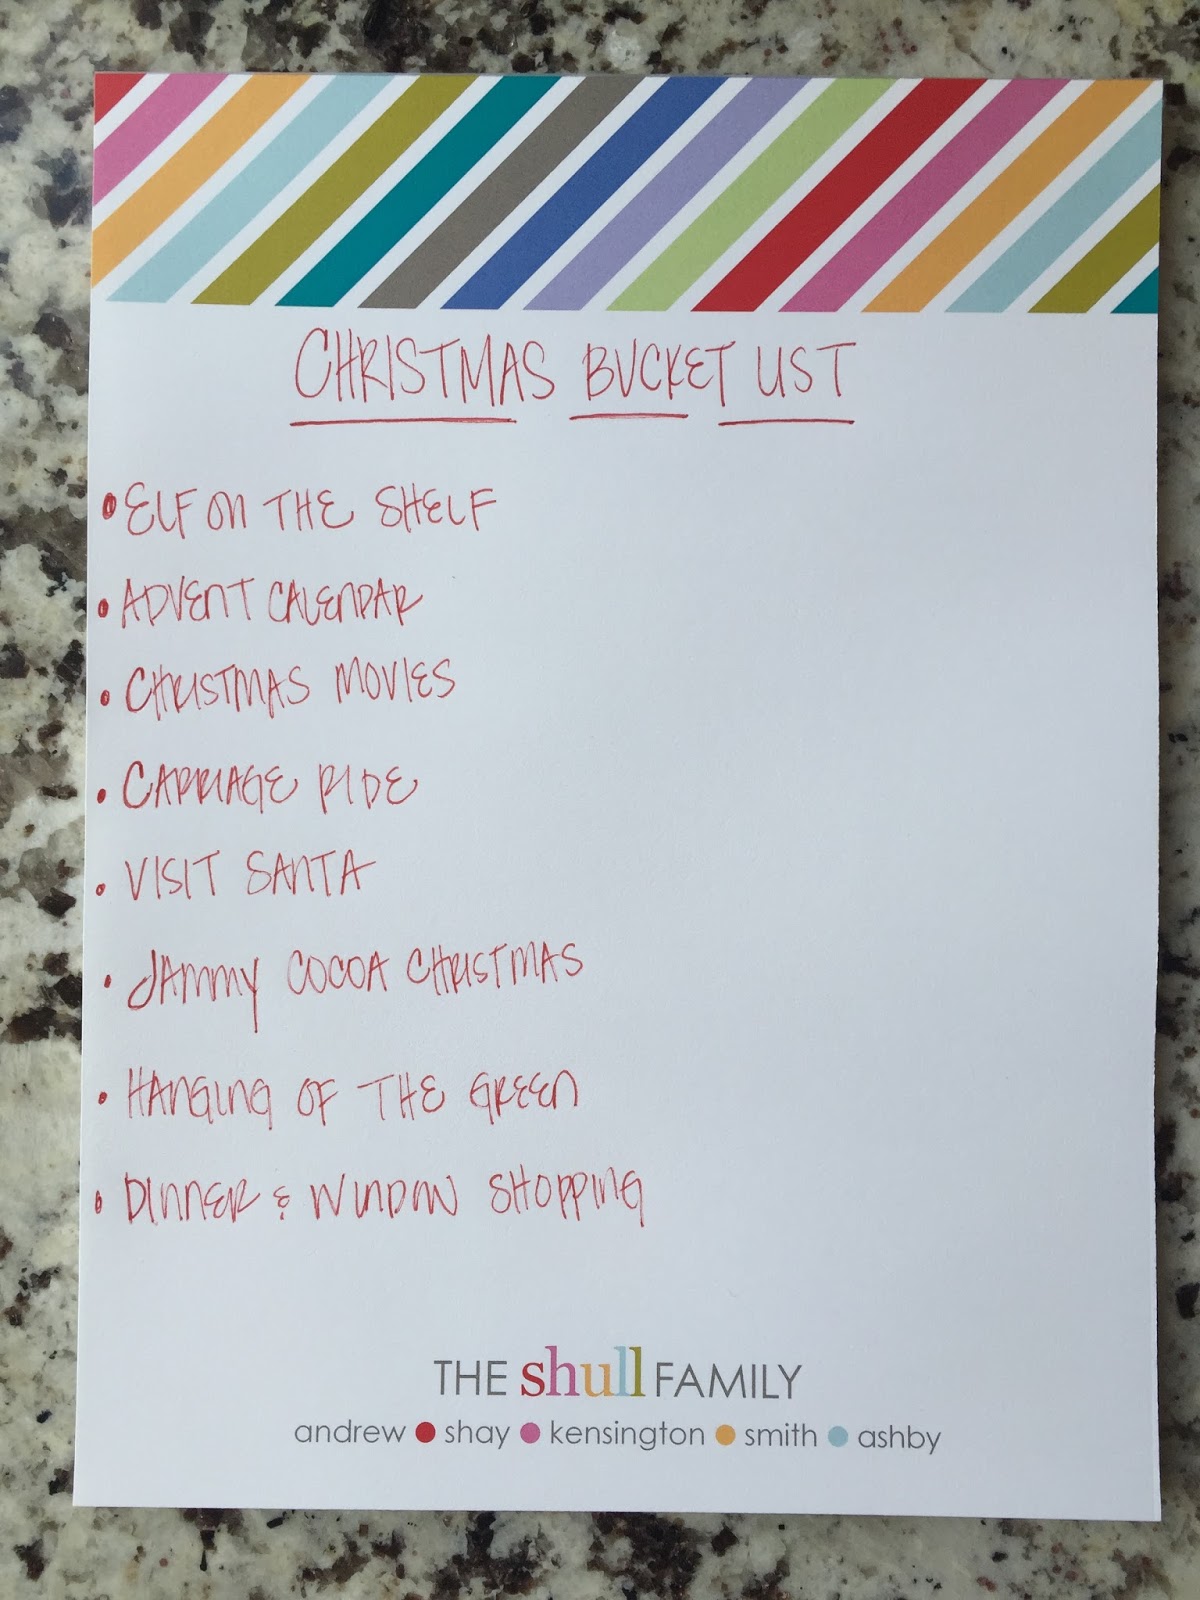 CHRISTMAS BUCKET LIST
• ELF ON THE SHELF
• ADVENT CALENDAR
• CHRISTMAS MOVIES
• CARRIAGE RIDE
• VISIT SANTA
• JAMMY COCOA CHRISTMAS
• HANGING OF THE GREEN
• DINNER & WINDOW SHOPPING
THE shull FAMILY
andrew ● shay ● kensington ● smith ● ashby